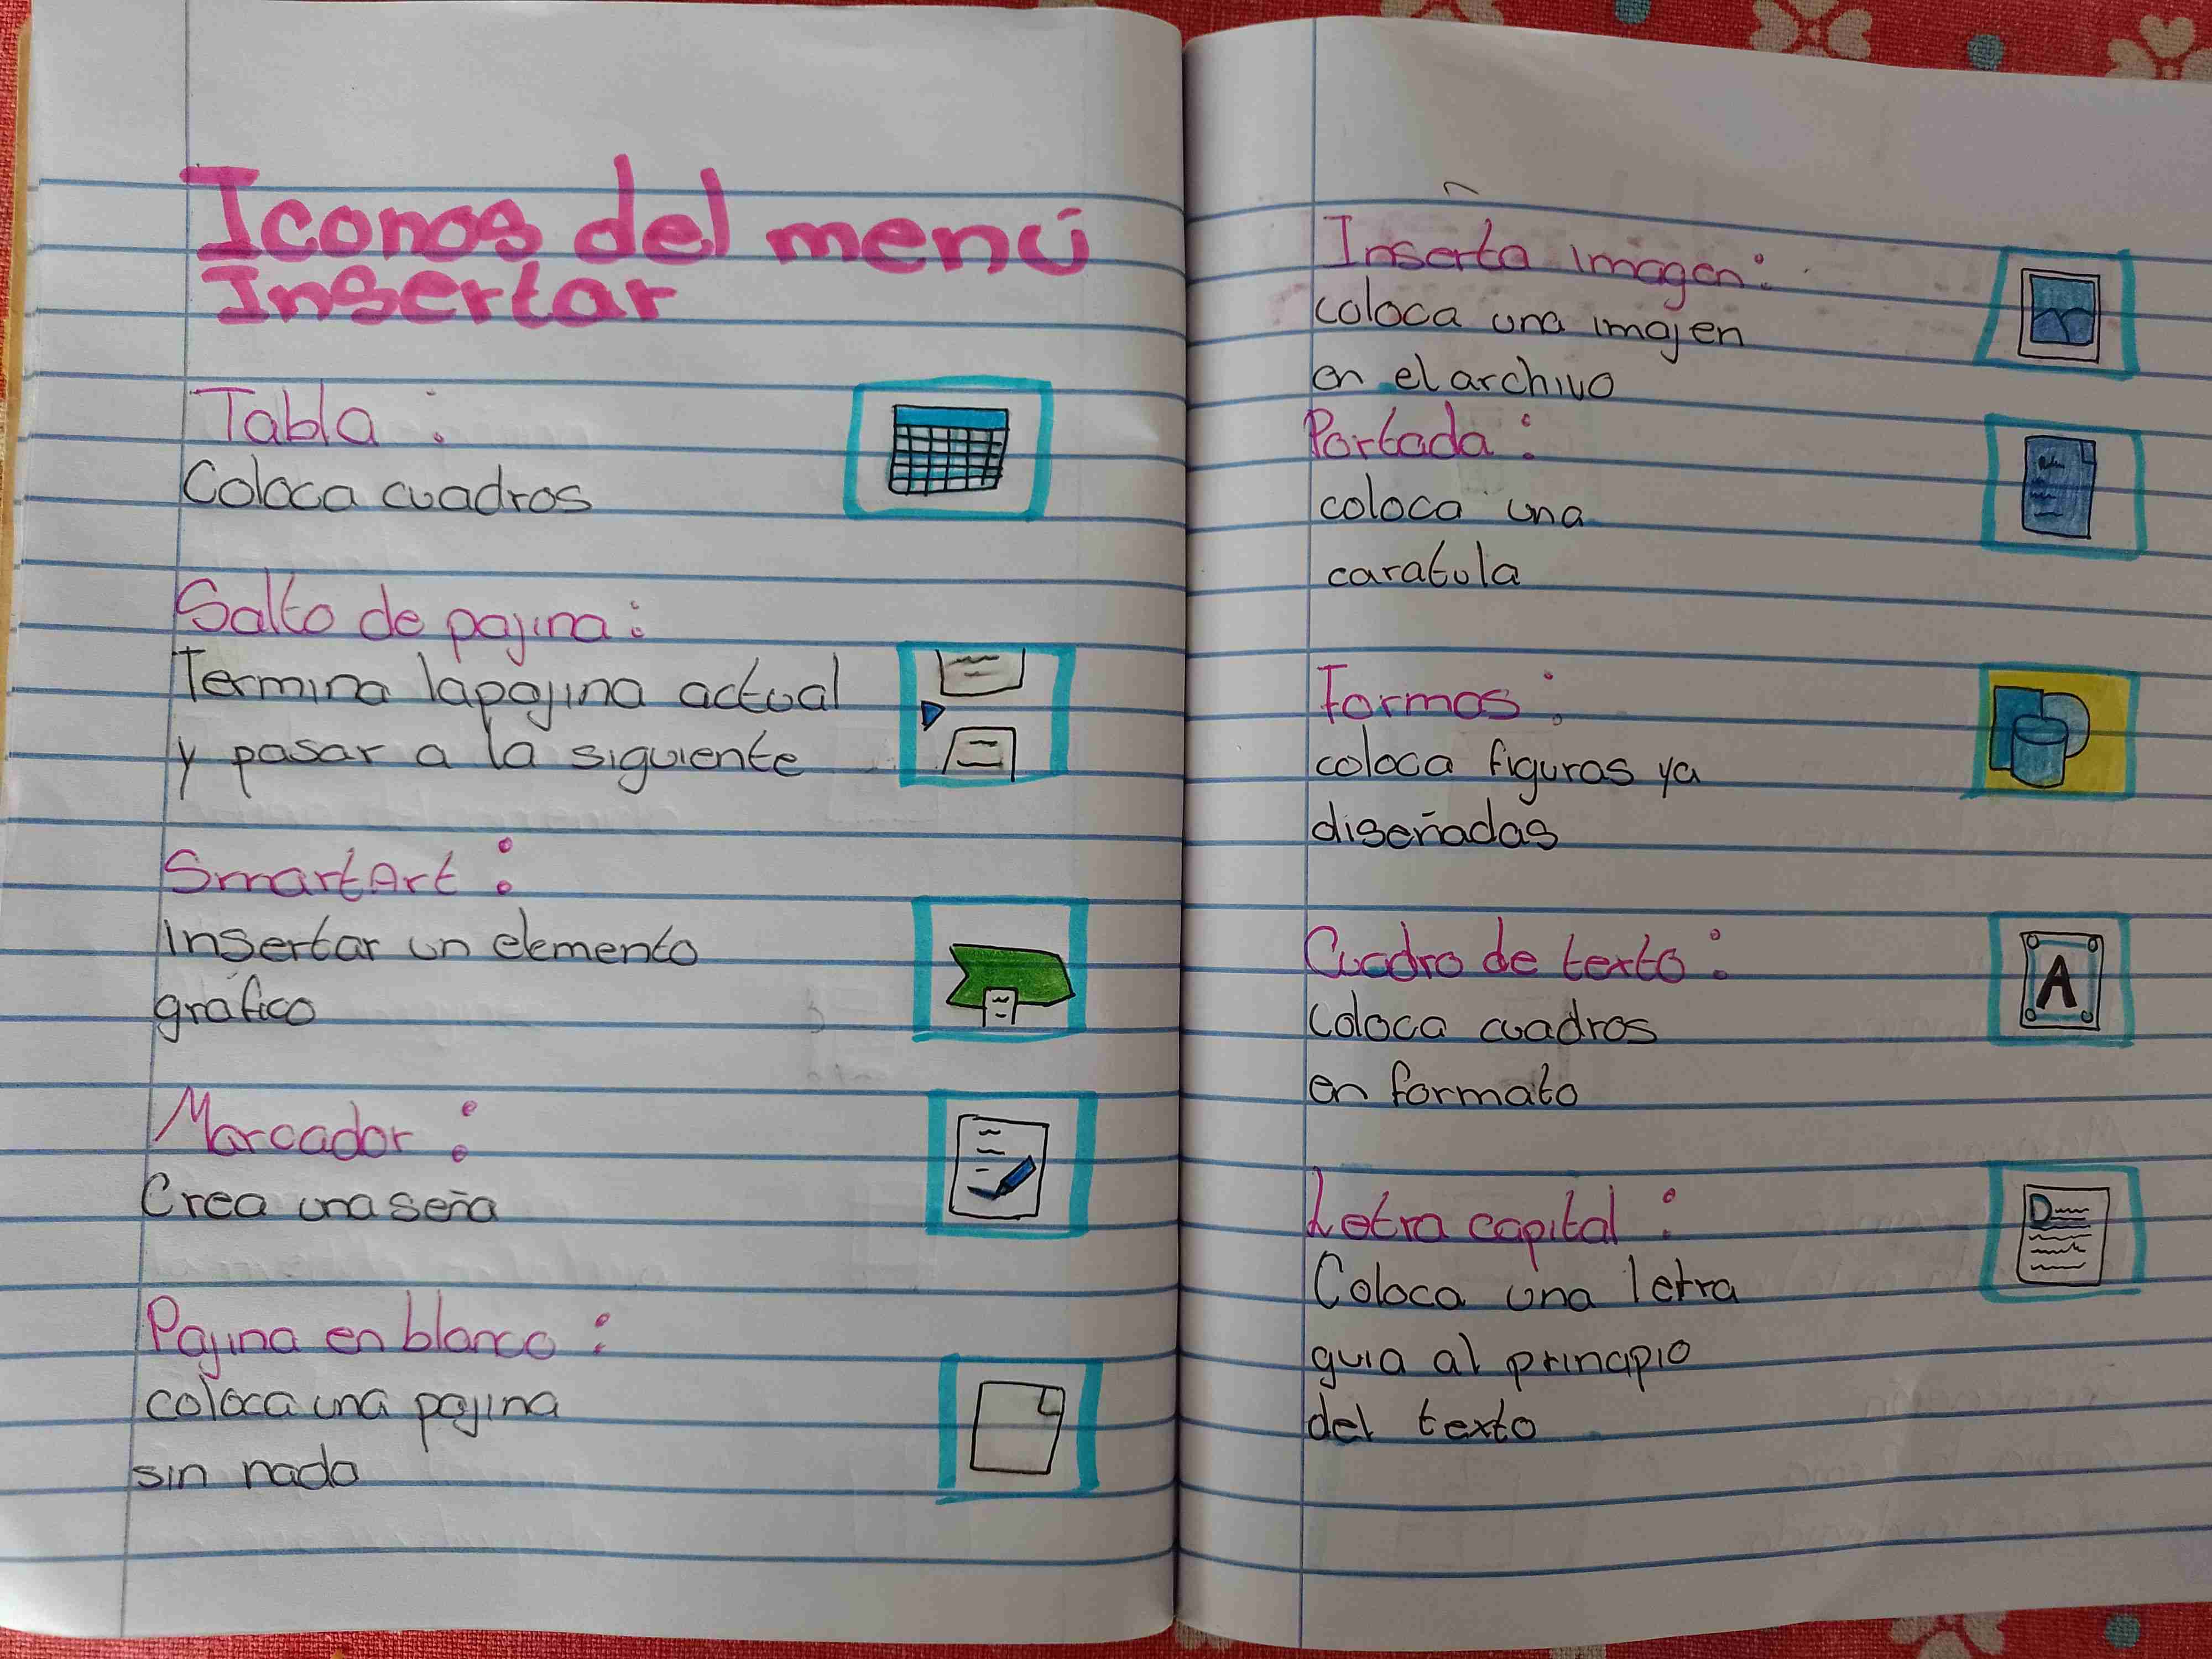 Iconos del menú
Insertar
Tabla:
Coloca cuadros
Salto de pajina:
Termina la pajina actual
y pasar a la siguiente
SmartArt:
Insertar un elemento
gráfico
Marcador:
Crea una seña
Pajina en blanco:
coloca una pajina
sin nada
Inserta imagen:
coloca una imajen
en el archivo
Portada:
coloca una
caratula
Formas:
coloca figuras ya
diseñadas
Cuadro de texto:
Coloca cuadros
en formato
A
Letra capital:
D
Coloca una letra
guia al principio
del texto